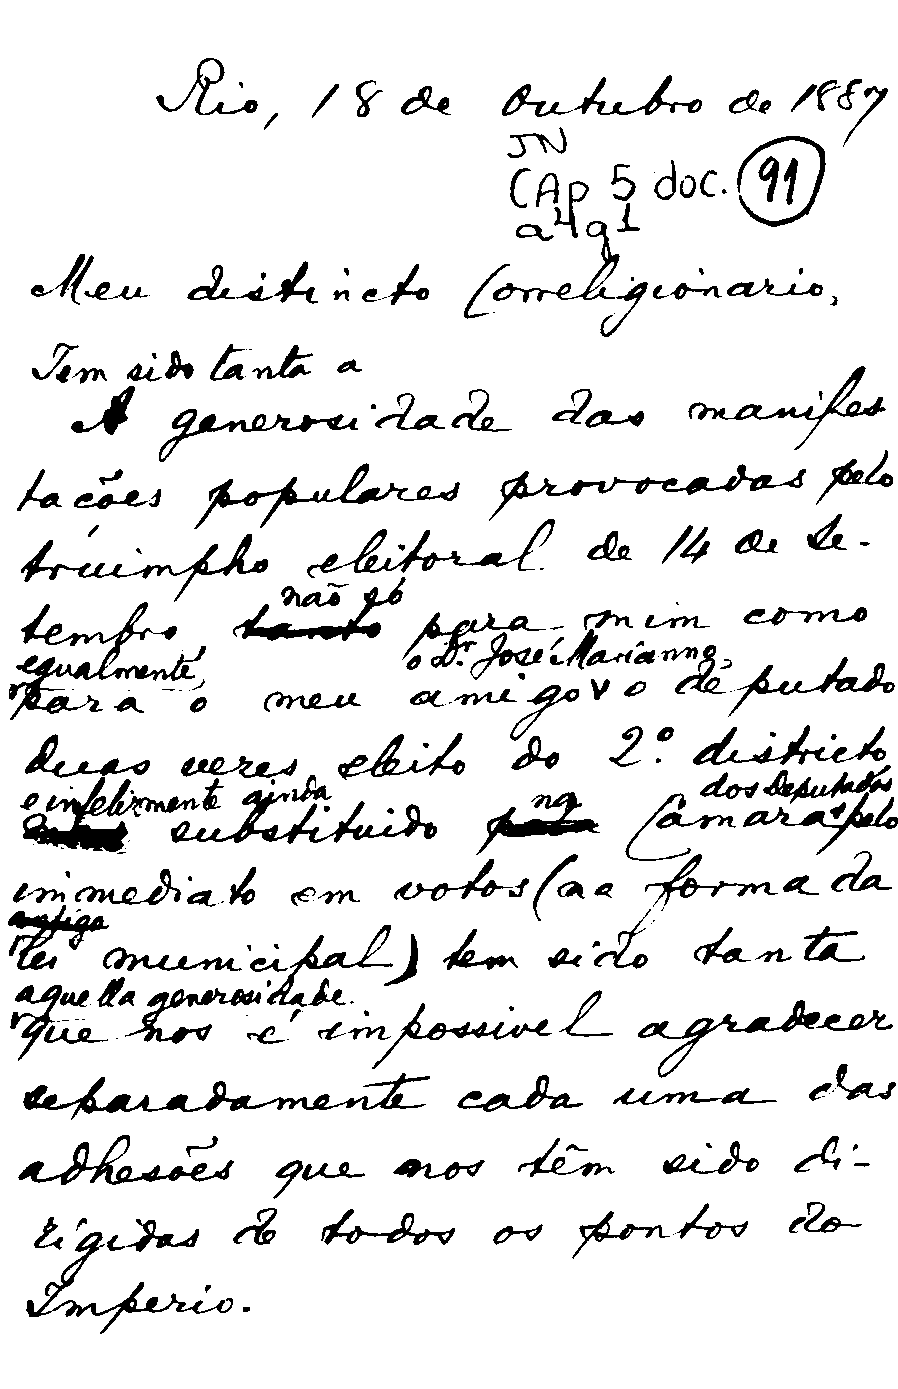 Rio, 18 de Outubro de 1887
JN
CAp 5 doc. 91
a4g1
Meu distincto Correligionario,
Tem sido tanta a
A generosidade das manifes
tações populares provocadas pelo
triumpho eleitoral de 14 de Se-
não só
tembro tanto para mim como
egualmente, o Dr. José Marianno,
para o meu amigo v o deputado
duas vezes eleito do 2º. districto
e infelizmente ainda na dos Deputados
substituido para Câmara pelo
immediato em votos (na forma da
antiga
lei municipal) tem sido tanta
aquella generosidade
que nos é impossivel agradecer
separadamente cada uma das
adhesões que nos têm sido di-
rigidas de todos os pontos do
Imperio.